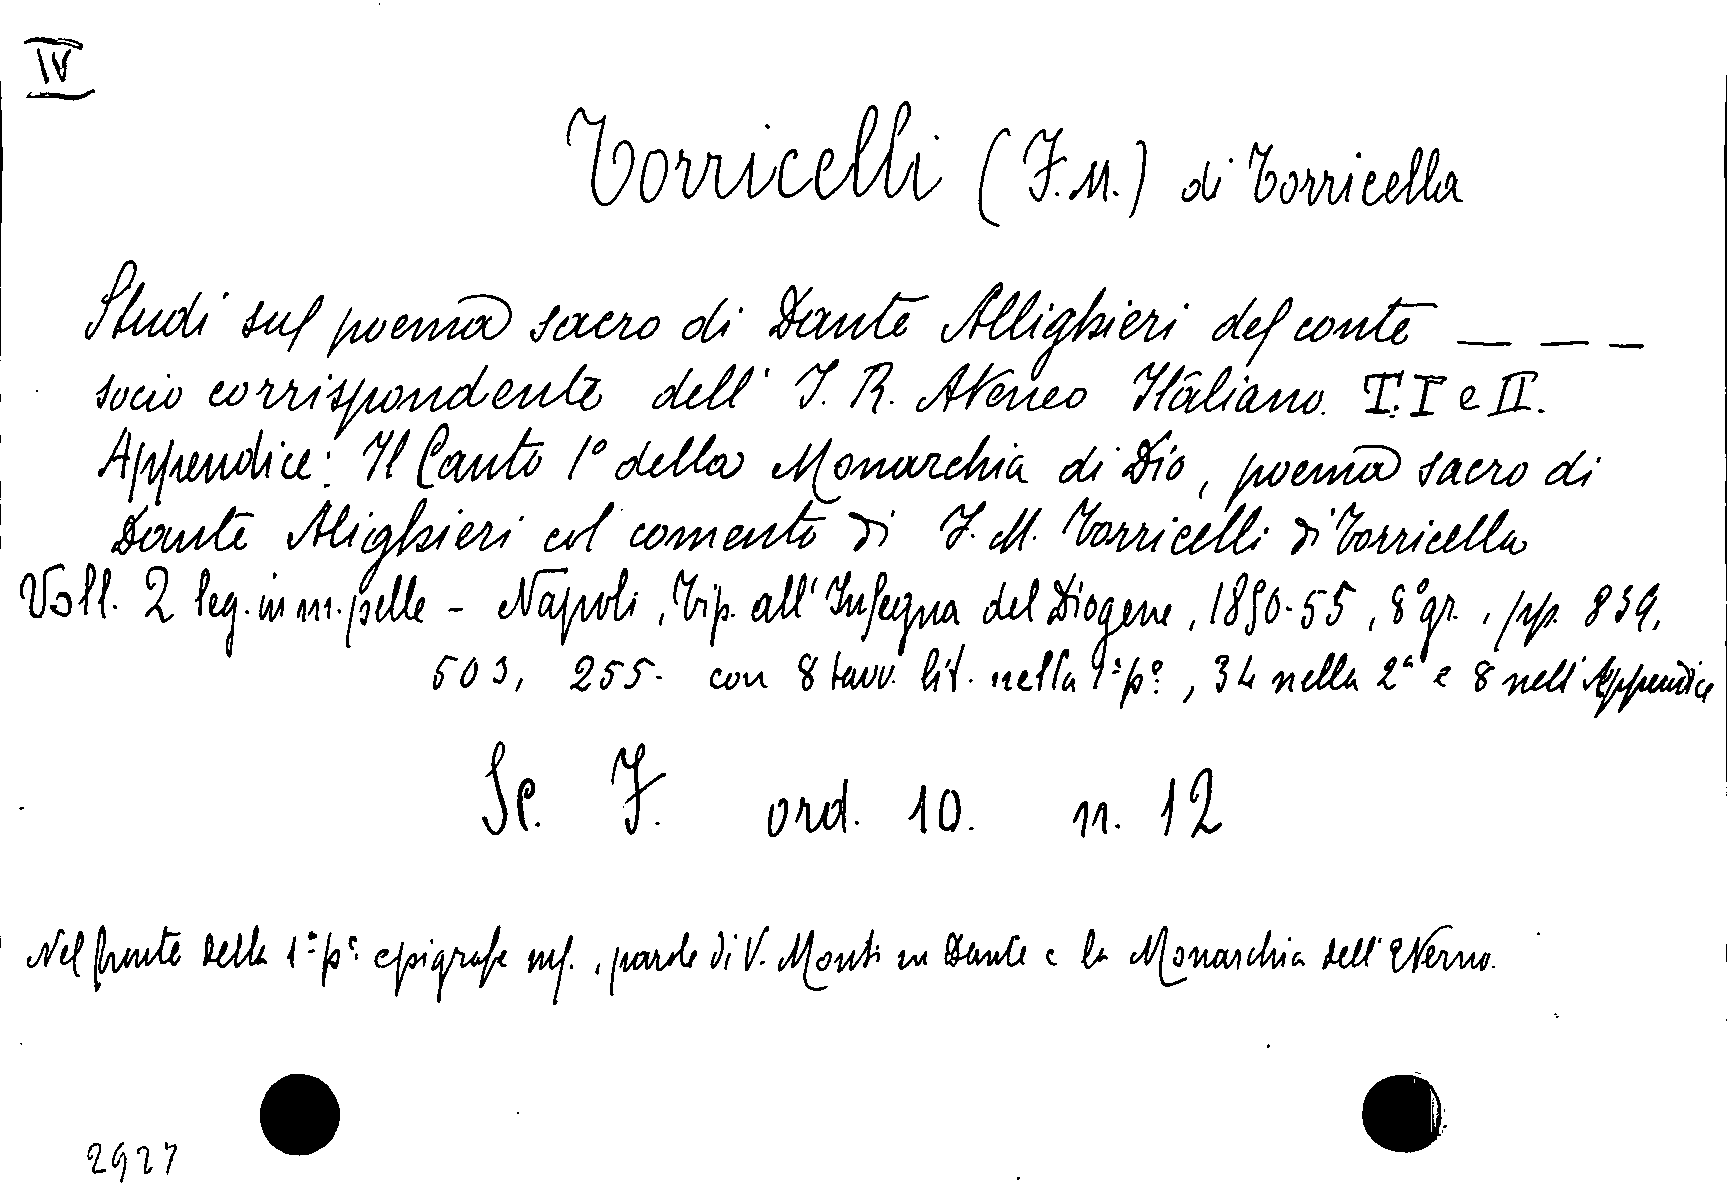 IV
Torricelli (F. M.) di Torricella
Studi sul poema sacro di Dante Allighieri del conte _ _ _
socio corrispondente dell' I. R. Ateneo Italiano. T. I e II.
Appendice: Il Canto 1° della Monarchia di Dio, poema sacro di
Dante Alighieri col comento di F. M. Torricelli di Torricella
Voll. 2 leg. in m. pelle - Napoli, Tip. all' Insegna del Diogene, 1850-55, 8° gr., pp. 839,
503, 255. con 8 tavv. lit. nella 1ª pe, 34 nella 2ª e 8 nell' Appendice
Sc. F. ord. 10. n. 12
Nel fronte della 1ª pe epigrafe, parole di V. Monti su Dante e la Monarchia dell' Eterno.
2927